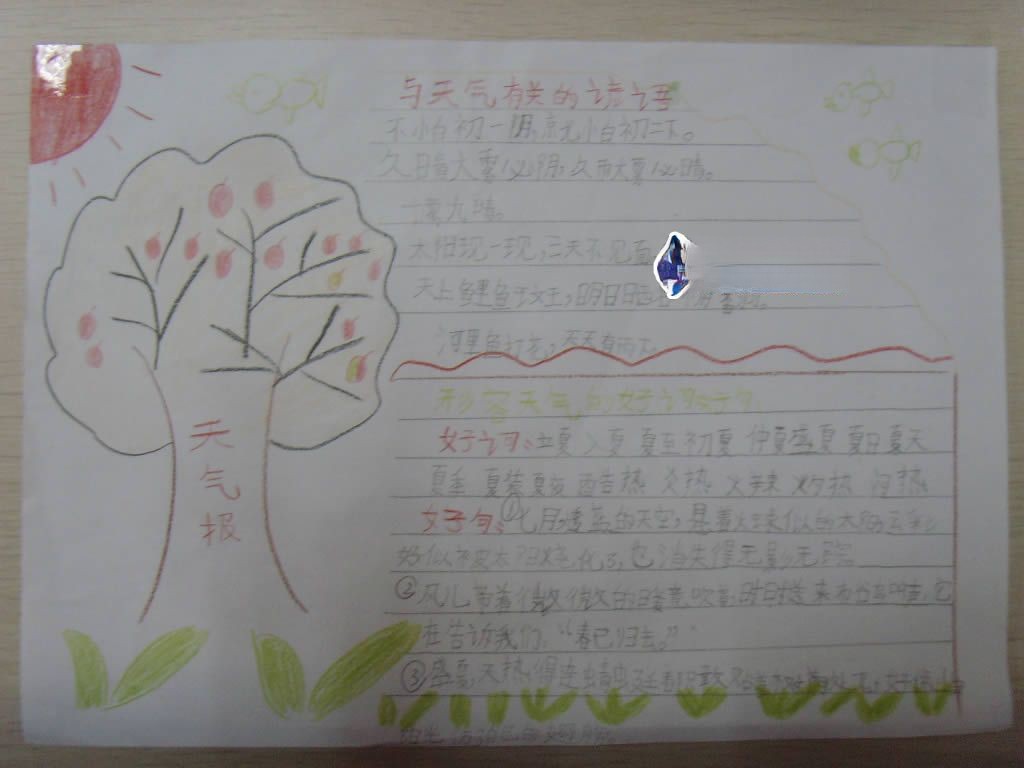 与天气有关的谚语
不怕初一阴,就怕初二下。
久晴大雾必阴,久雨大雾必晴。
一雾九晴。
太阳现一现,三天不见面
天上鲤鱼斑,明日晒谷不用翻。
河里鱼打花,天天有雨下
形容天气的好词好句
好词:立夏 入夏 夏至 初夏 仲夏 盛夏 夏日 夏天
夏季 夏装 夏夜 酷热 炎热 火辣 灼热
天
气
报
好句:①七月,透蓝的天空,悬着火球似的太阳,云彩
好似被太阳烧化了,也消失得无影无踪
②风儿带着微微的暖意,吹着,时时送来布谷鸟叫声,它
在告诉我们:“春已归去。”
③盛夏,天热得连蜻蜓都只敢贴着树荫处飞,好像怕
阳光